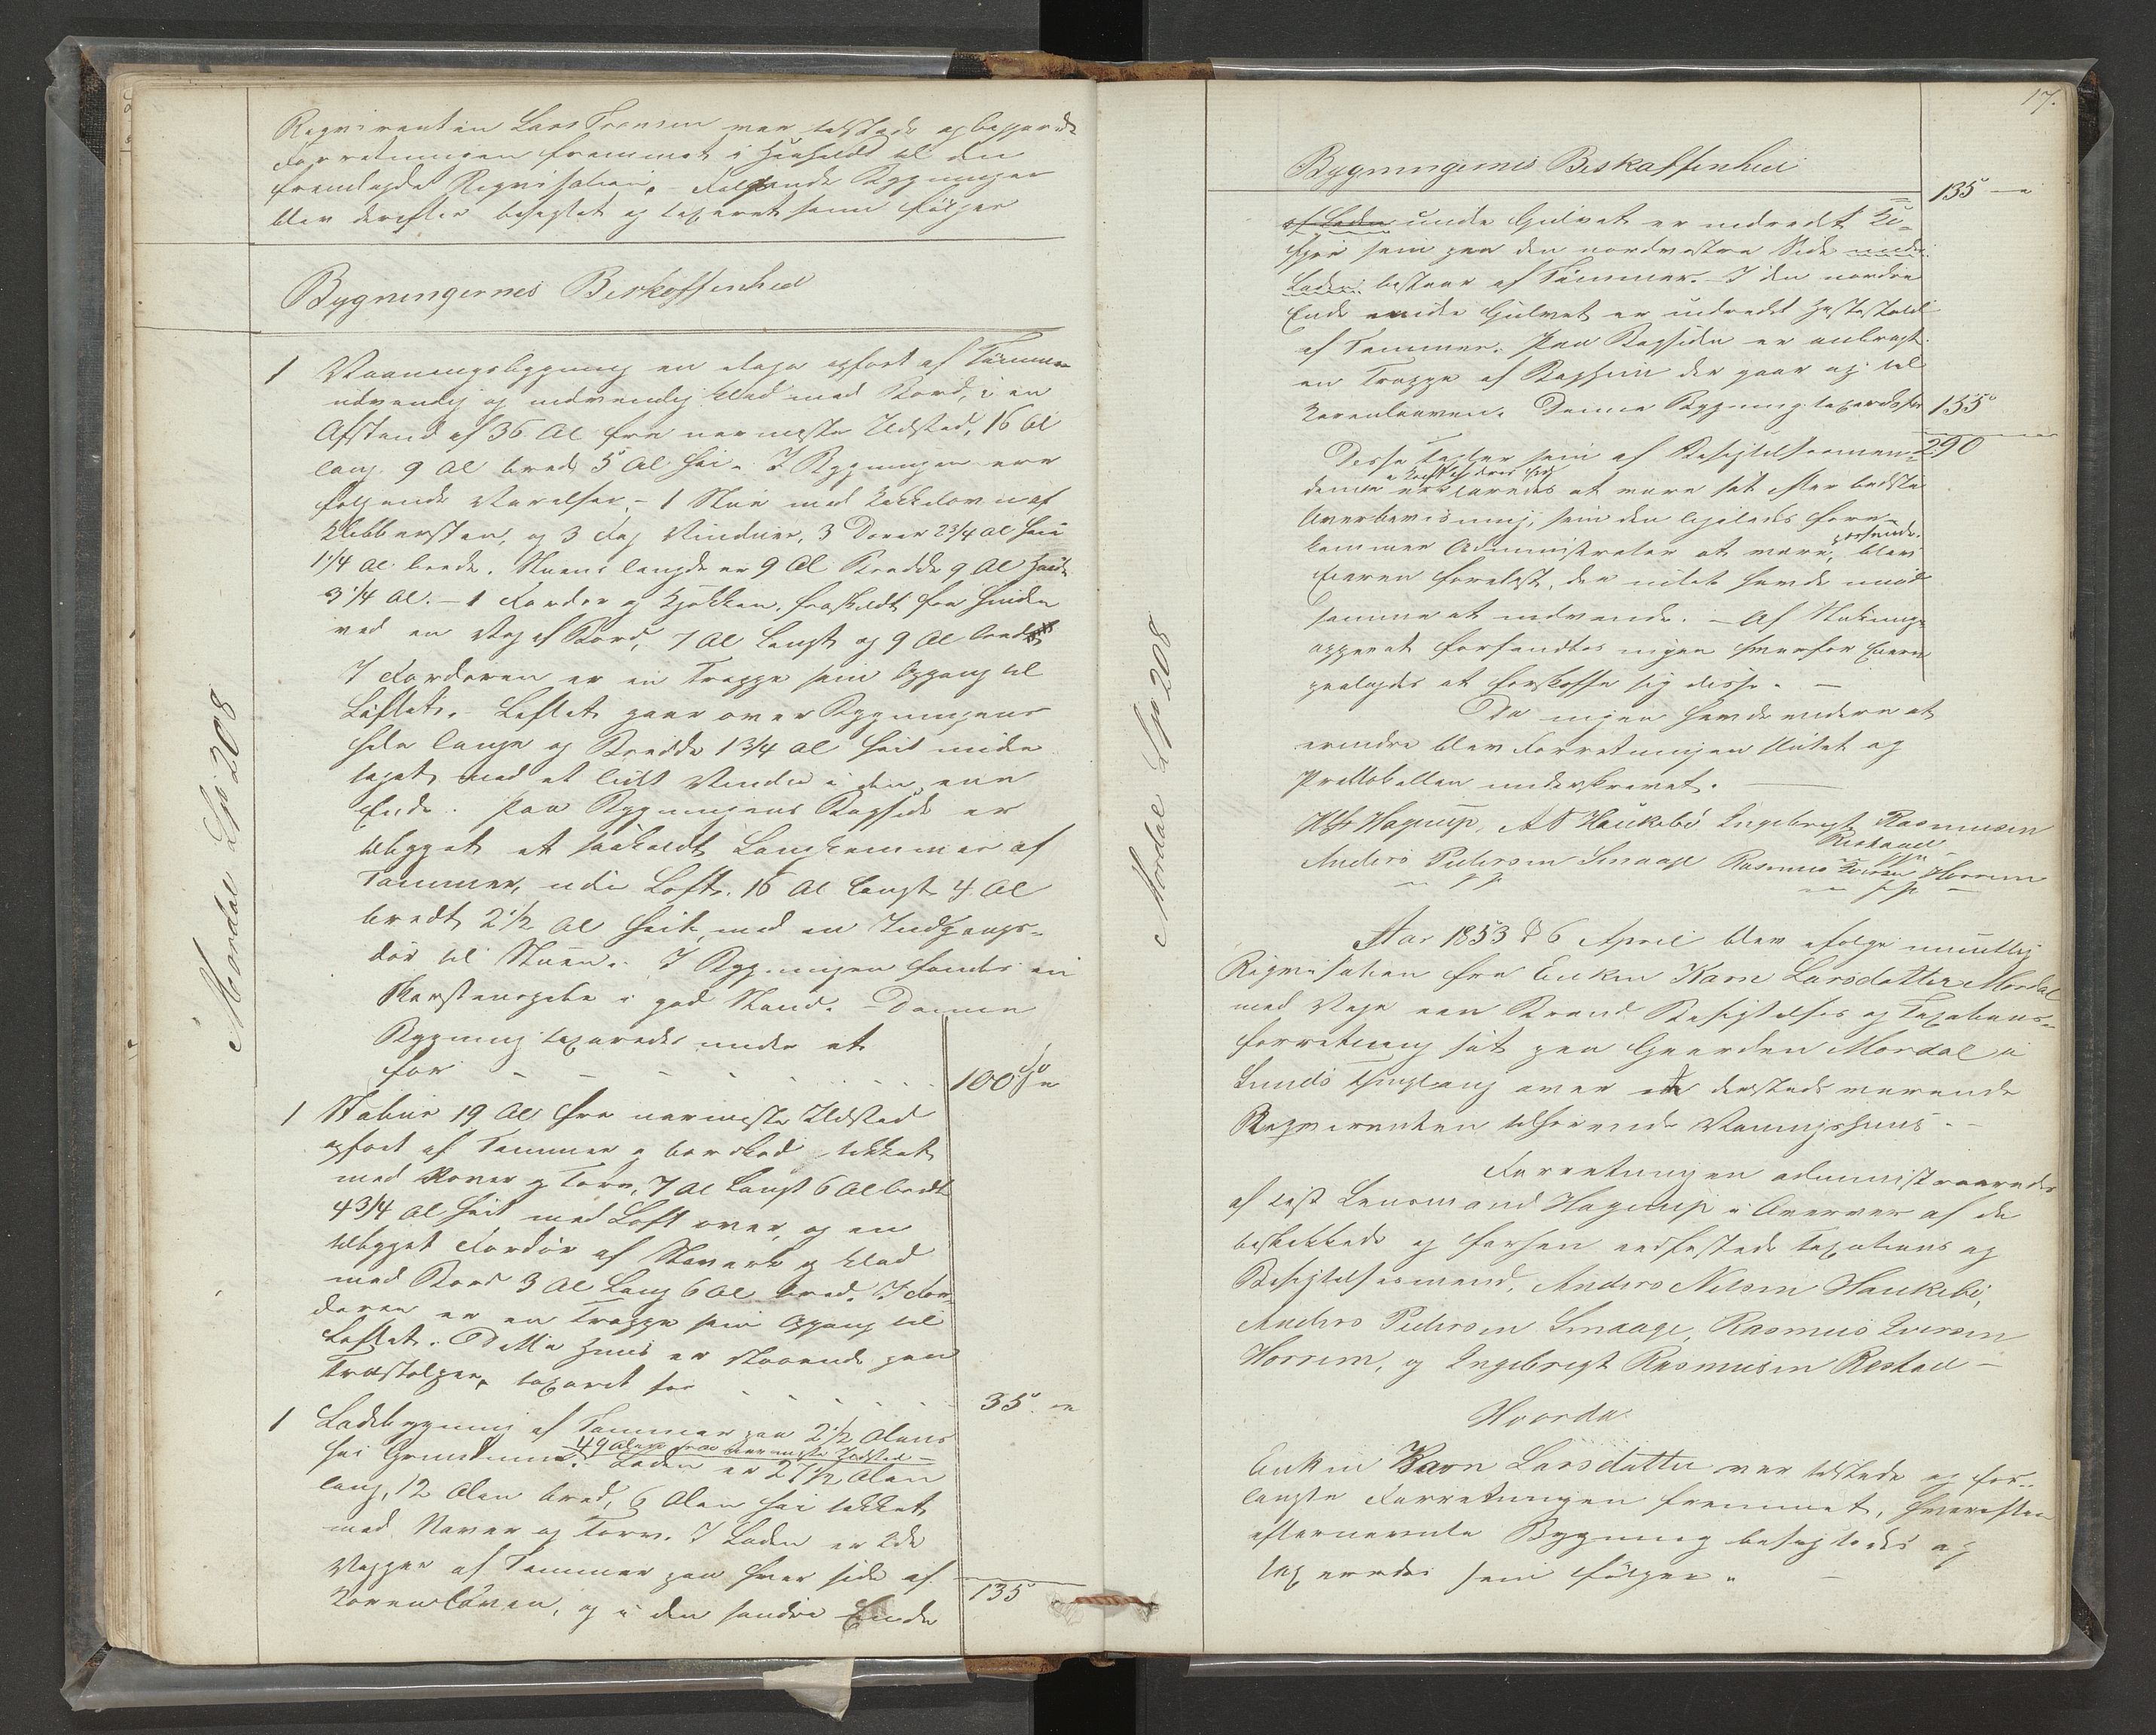 Reqvirenten Lars Ivensen var tilstede og begjærede
Forretningen fremmet i Henhold til den
fremlagde Reqvisation. Følgende Bygninger
blev derefter besigtet og taxeret som følger
Bygningernes Beskaffenhed
1 Vaaningsbygning en etage opført af Tømmer
udvendig og indvendig klæd med Bord, i en
Afstand af 36 Al fra nærmeste Ildsted, 16 Al
lang 9 Al bred 5 Al høi. I Bygningen ere
følgende Værelser, - 1 Stue med Kakkelovn af
Klebbersten, og 3 Fag Vinduer, 3 Dører 2 3/4 Al høie
1 1/4 Al brede. Stuens længde er 9 Al Bredde 9 Al Høide
3 1/4 Al. - 1 Fordør og Kjøkken, fraskildt fra hinden
ved en Væg af Bord, 7 Al langt og 9 Al bredt
I Fordøren er en Trappe som Opgang til
Loftet. Loftet gaar over Bygningens
hele længe og Bredde 1 3/4 Al høit under
taget med et lidt Vindue i den ene
Ende. Paa Bygningens Bagside er
tilbygget et saakaldt Langkammer af
Tømmer, uden Loft. 16 Al langt 4 Al
bredt 2 1/2 Al høit, med en Indgangs-
dør til Stuen. I Bygningen fandtes en
Skorstenspibe i god Stand. - Denne
Bygning taxeredes under et
for - - - - - - 100 Sp
1 Stabur 19 Al fra nærmeste Ildsted
opført af Tømmer og bordklæd tækket
med Næver og Torv, 7 Al langt 6 Al bredt
4 3/4 Al høit med Loft over, og en
tilbygget Fordør af Stavværk og klæd
med Bord 3 Al lang 6 Al bred. I For-
døren er en Trappe som Opgang til
Loftet. Dette Huus er staaende paa
Træstolper, taxeret for - - - - 35
1 Ladebygning af Tømmer paa 2 1/2 Alens
høi Grundmuur. 49 Alen fra nærmeste Ildsted -
Laden er 27 1/2 Alen
lang, 12 Alen bred, 6 Alen høi tækket
med Næver og Torv. I Laden er 2de
Vægger af Tømmer paa hver side af
Kornlaaven, og i den søndre Ende
135
Mordal Lb. 208
17.
Bygningernes Beskaffenhed
135
af Laden under Gulvet er indredt Fæ-
huus som paa den nordvestre Side under
Laden bestaar af Tømmer. I den nordre
Ende under Gulvet er indredet Hestestald
af Tømmer. Paa Bagsiden er anbragt
en Trappe af der gaar op til
Kornlaaven. Denne Bygning taxeredes for 155
290
Disse Taxter som af Besigtelsesmæn-
dene erklæredes at være sat efter bedste
Overbeviisning, som den ligeledes fore-
kommer Administrator at være, passende.
blev
Eieren forelæst, der intet havde imod
samme at indvende. - Af Slukning-
apparat forfandtes ingen hvorfor Eieren
paalagdes at forskaffe sig disse. -
Da ingen havde videre at
erindre blev Forretningen sluttet og
Protokollen underskrevet.
Hagerup, A N Haukebø Ingebregt Rasmusen
Restad
Anders Pedersen Smaage Rasmus Iversen Horrem
Mordal Lb. 208
Aar 1853 d 6 April blev ifølge mundtlig
Reqvisation fra Enken Karn Larsdatter Mordal
med Vege een Brand Besigtelses og Taxations-
forretning sat paa Gaarden Mordal i
Sunds Thinglaug over det dersteds værende
Reqvirenten tilhørende Vaaningshuus -
Forretningen administraredes
af Lensmand Hagerup i Overvær af de
beskikkede og forhen eedfæstede Taxations og
Besigtelsesmænd, Anders Nilsen Haukebø,
Anders Pedersen Smaage, Rasmus Iversen
Horrem, og Ingebregt Rasmusen Restad -
Hvorda
Enken Karn Larsdatter var tilstede og for-
langte Forretningen fremmet, hvorefter
efternævnte Bygning besigtedes og
taxeredes som følger. -